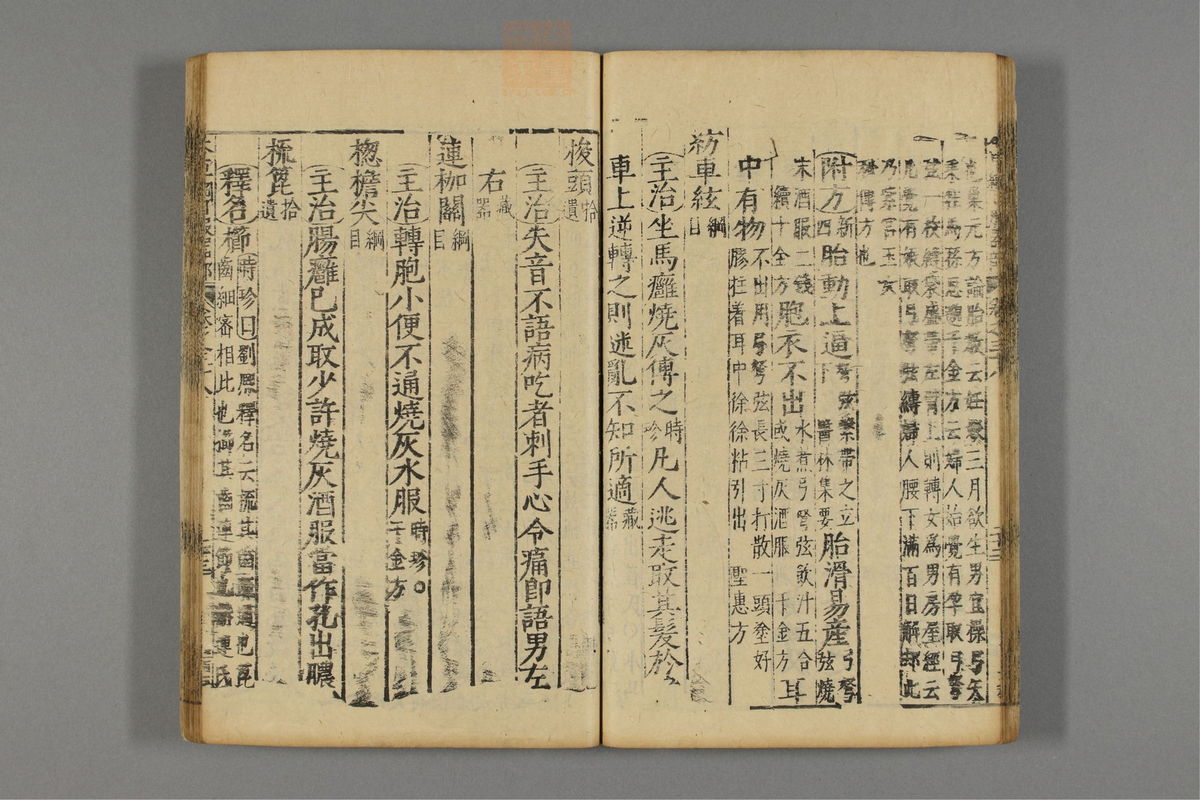 巢元方論胎教云妊娠三月欲生男宜操弓矢
乘牡馬孫思邈千金方云婦人始覺有孕取弓弩
弦一枚縫囊盛帶左臂上則轉女爲男房屋經云
凡覺有娠取弓弩弦縛婦人腰下滿百日解却此
乃紫宮玉女
秘傳方也
附方新四胎動上逼弩弦繫帶之立下醫林集要胎滑易產弓弩弦燒
末酒服二錢續十全方胞衣不出水煮弓弩弦飲汁五合或燒灰酒服千金方耳
中有物不出用弓弩弦長三寸打散一頭塗好膠拄着耳中徐徐粘引出聖惠方
紡車絃綱目
主治坐馬癰燒灰傅之時珍凡人逃走取其髮於
車上逆轉之則迷亂不知所適藏器
梭頭拾遺
主治失音不語病吃者刺手心令痛卽語男左
右藏器
連枷關綱目
主治轉胞小便不通燒灰水服時珍○千金方
楤檐尖綱目
主治腸癰已成取少許燒灰酒服當作孔出膿
梳篦拾遺
釋名櫛時珍曰劉熙釋名云梳其齒疏通也篦
其齒細密相比也櫛其齒連節也赫連氏